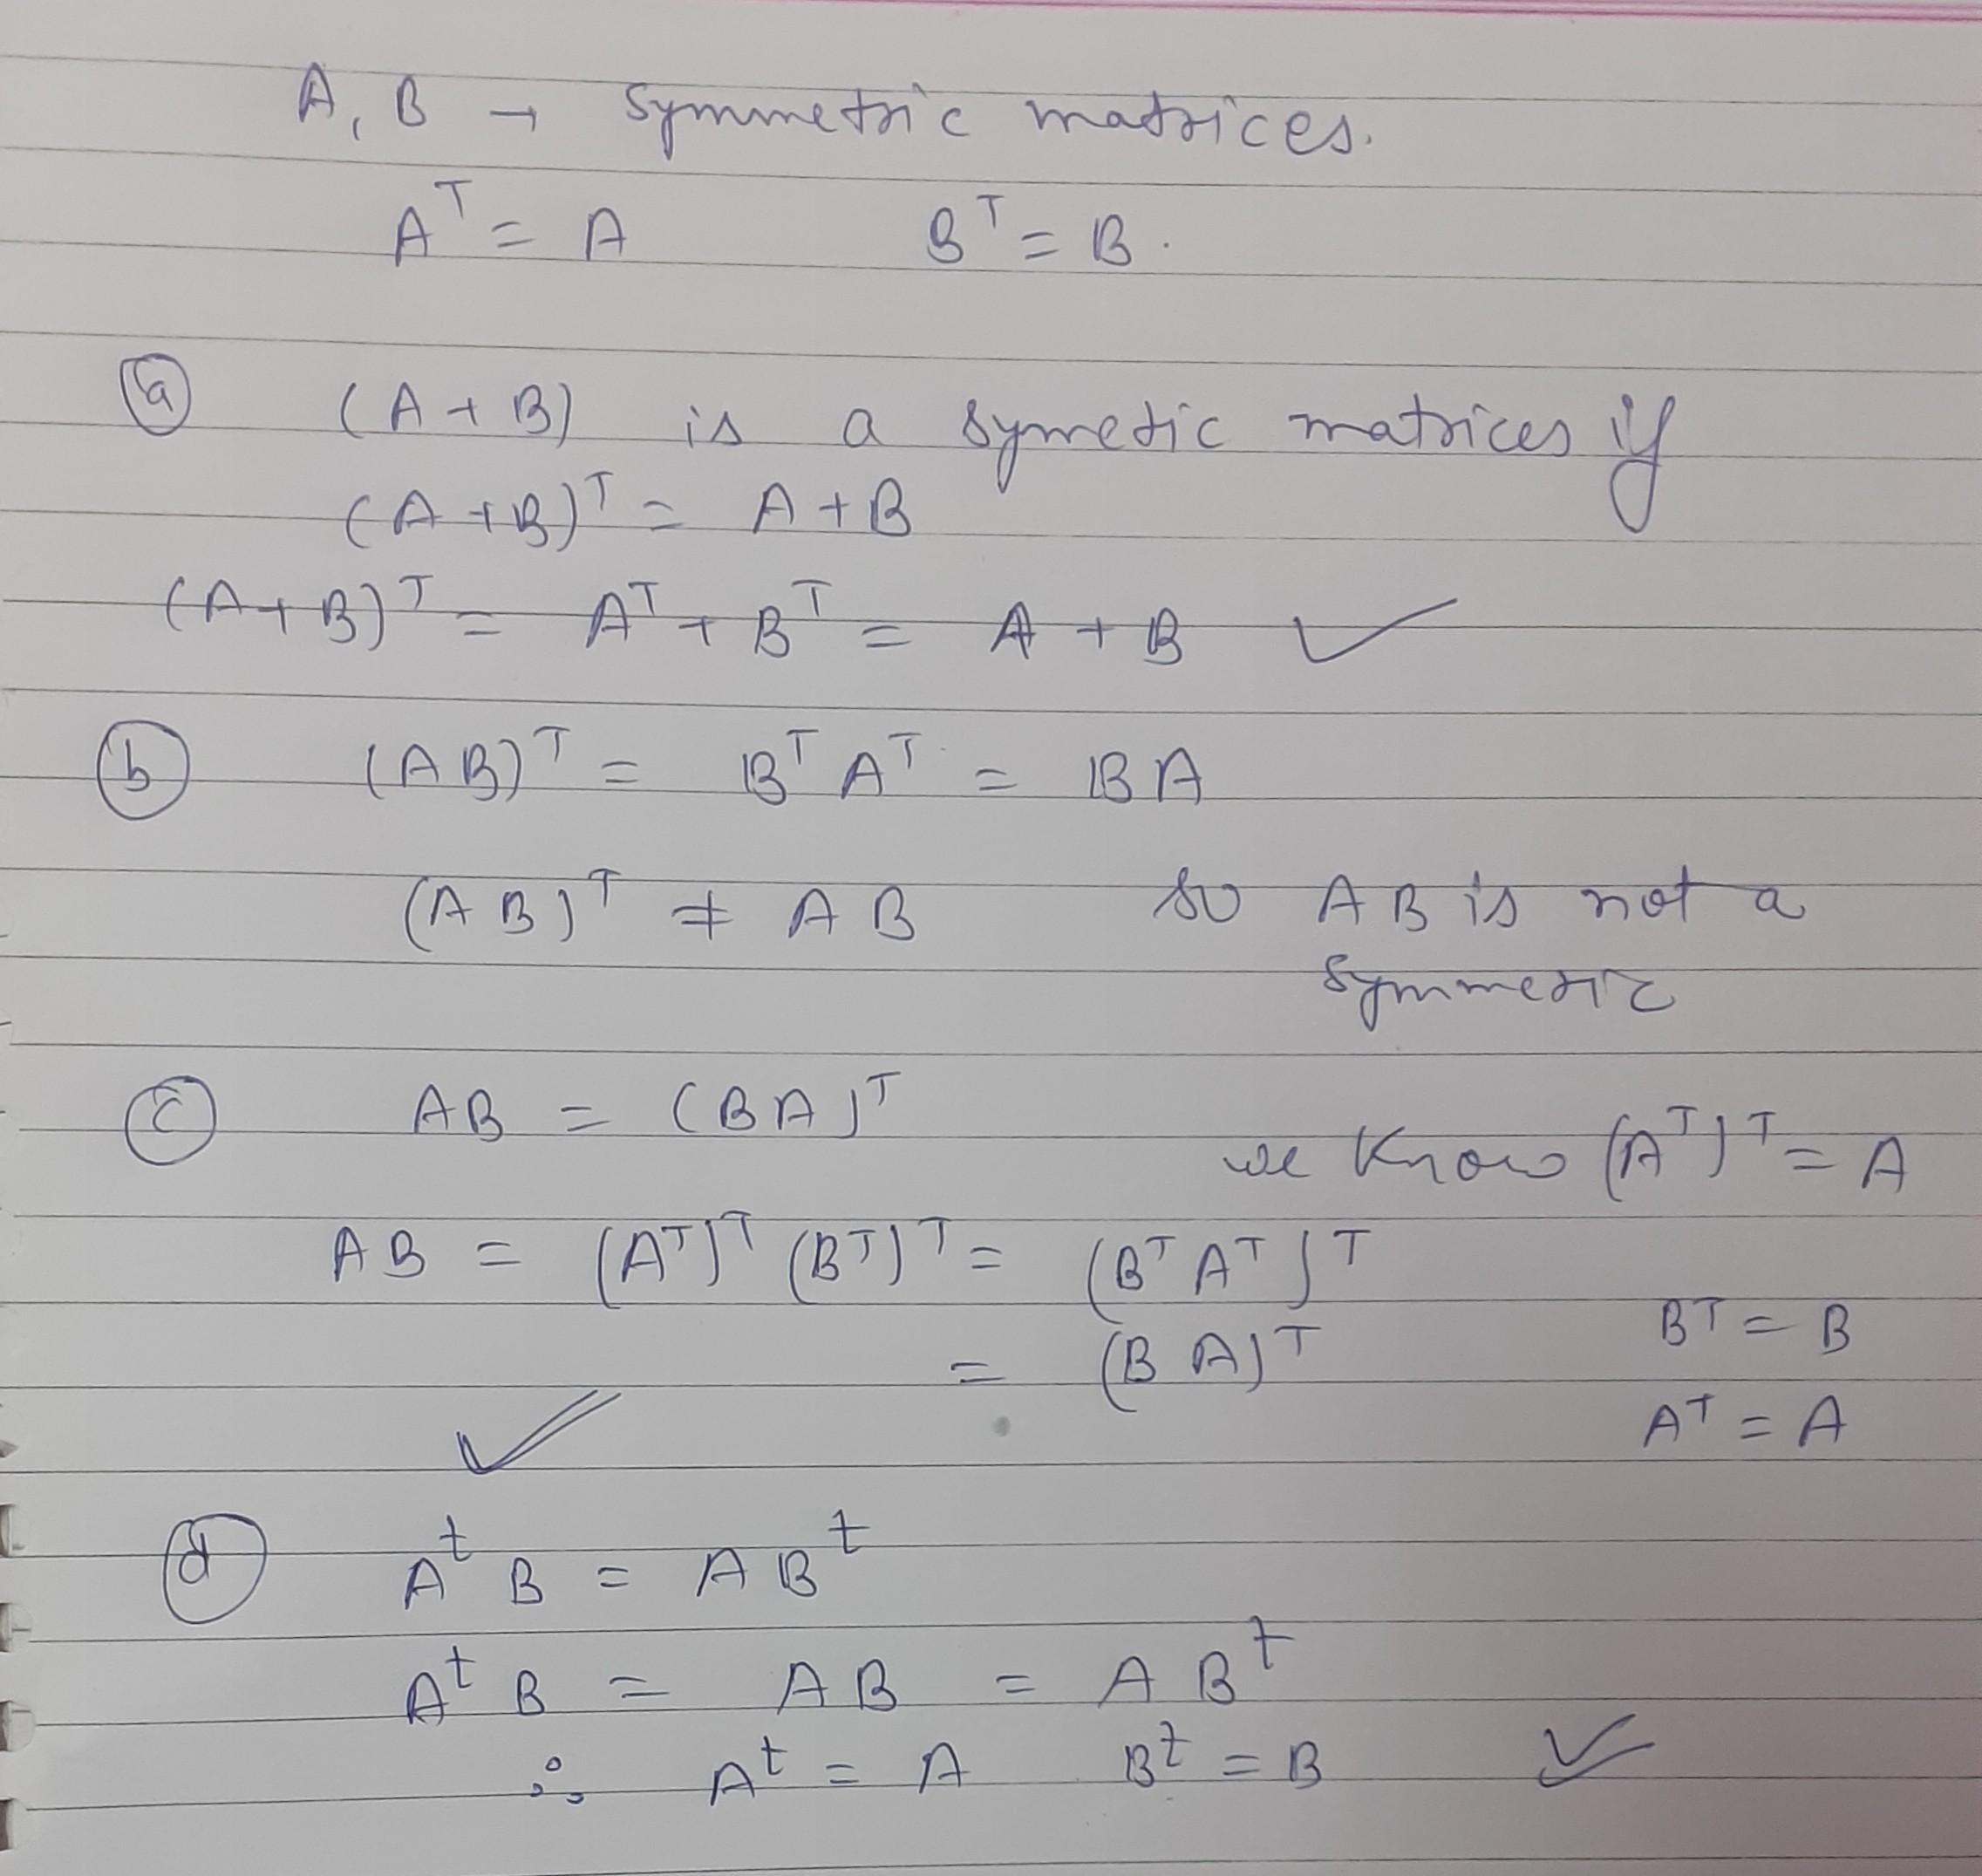 A, B → Symmetric matrices.
Aᵀ = A Bᵀ = B.
(a) (A + B) is a symmetic matrices if
(A + B)ᵀ = A + B
(A + B)ᵀ = Aᵀ + Bᵀ = A + B ✓
(b) (AB)ᵀ = Bᵀ Aᵀ = BA
(AB)ᵀ ≠ AB so AB is not a
Symmetric
(c) AB = (BA)ᵀ
we know (Aᵀ)ᵀ = A
AB = (Aᵀ)ᵀ (Bᵀ)ᵀ = (Bᵀ Aᵀ)ᵀ
Bᵀ = B
= (B A)ᵀ
Aᵀ = A
✓
(d) Aᵗ B = A Bᵗ
Aᵗ B = AB = A Bᵗ
∴ Aᵗ = A Bᵗ = B ✓